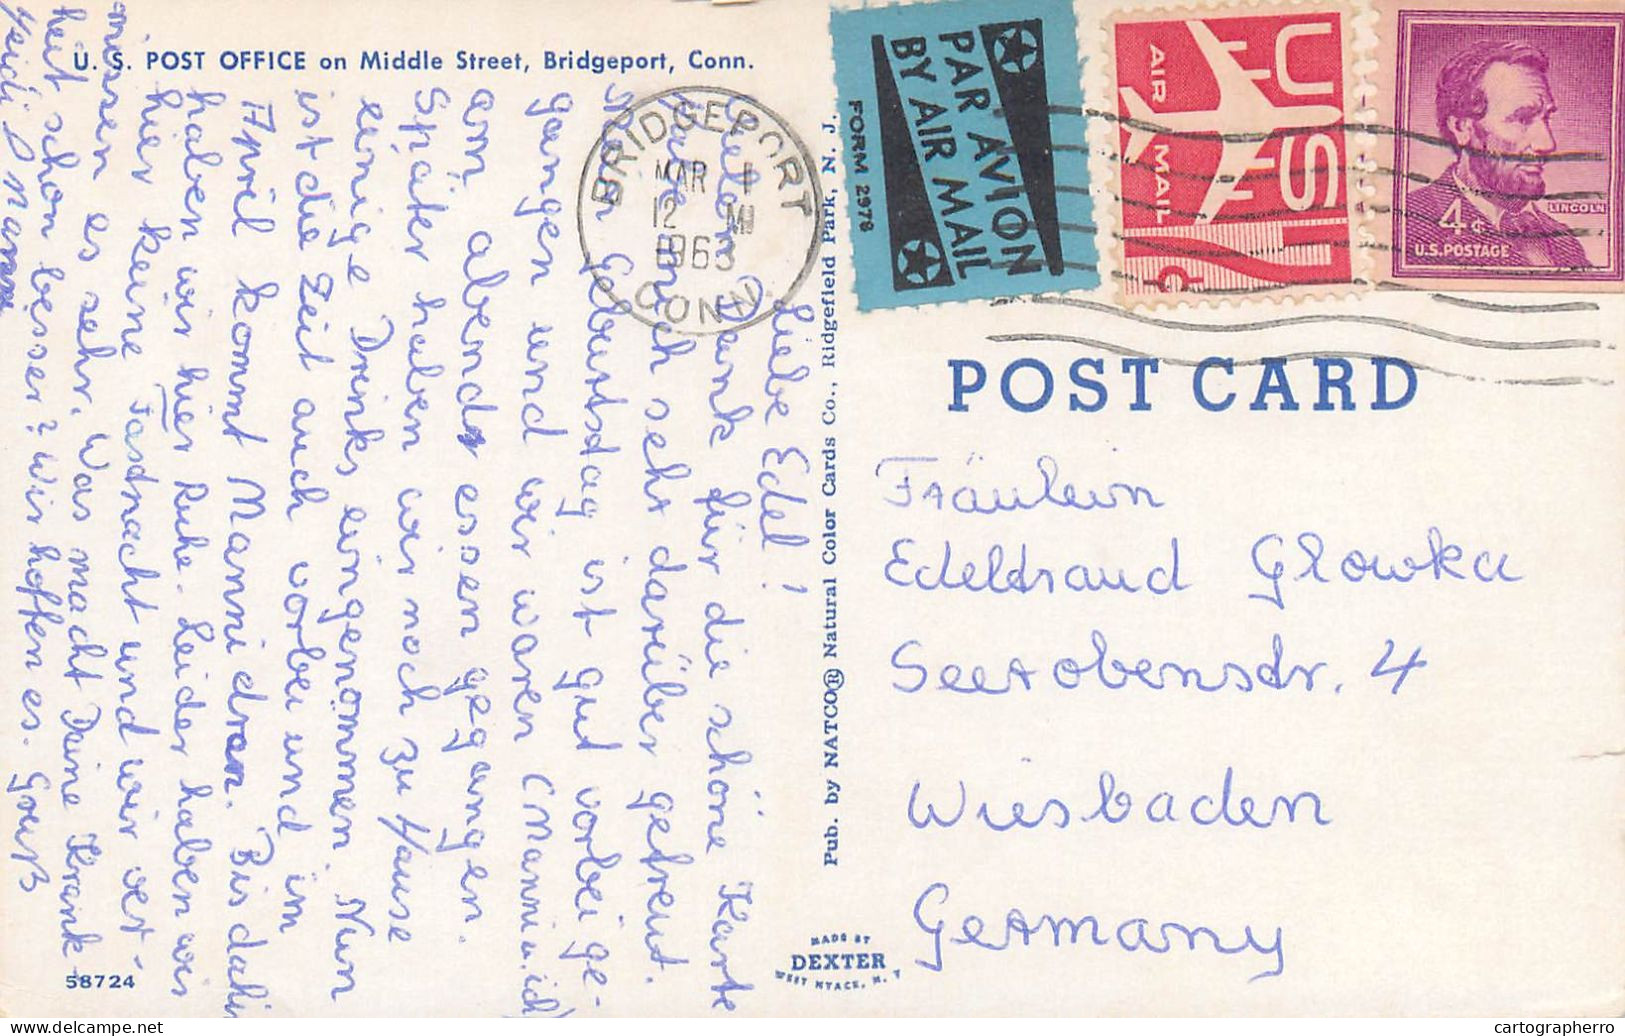 U. S. POST OFFICE on Middle Street, Bridgeport, Conn.
Liebe Edel!
Vielen Dank für die schöne Karte
habe mich sehr darüber gefreut.
Mein Geburtstag ist gut vorbei ge-
gangen und wir waren (Manni u. ich)
am abends essen gegangen.
Später haben wir noch zu Hause
einige Drinks eingenommen. Nun
ist die Zeit auch vorbei und im
April kommt Manni dran. Bis dahin
haben wir hier Ruhe. Leider haben wir
hier keine Fastnacht und wir ver-
missen es sehr. Was macht Deine Krank-
heit schon besser? Wir hoffen es. Gruß
Heidi Mann
58724
BRIDGEPORT
MAR 1
12 M
1963
CONN.
PAR AVION
BY AIR MAIL
FORM 2976
AIR MAIL
US
7¢
4¢
LINCOLN
U.S. POSTAGE
Pub. by NATCO® Natural Color Cards Co., Ridgefield Park, N. J.
POST CARD
Fräulein
Edeltraud Glowka
Seerobenstr. 4
Wiesbaden
Germany
MADE BY
DEXTER
WEST NYACK, N. Y.
cartographerro